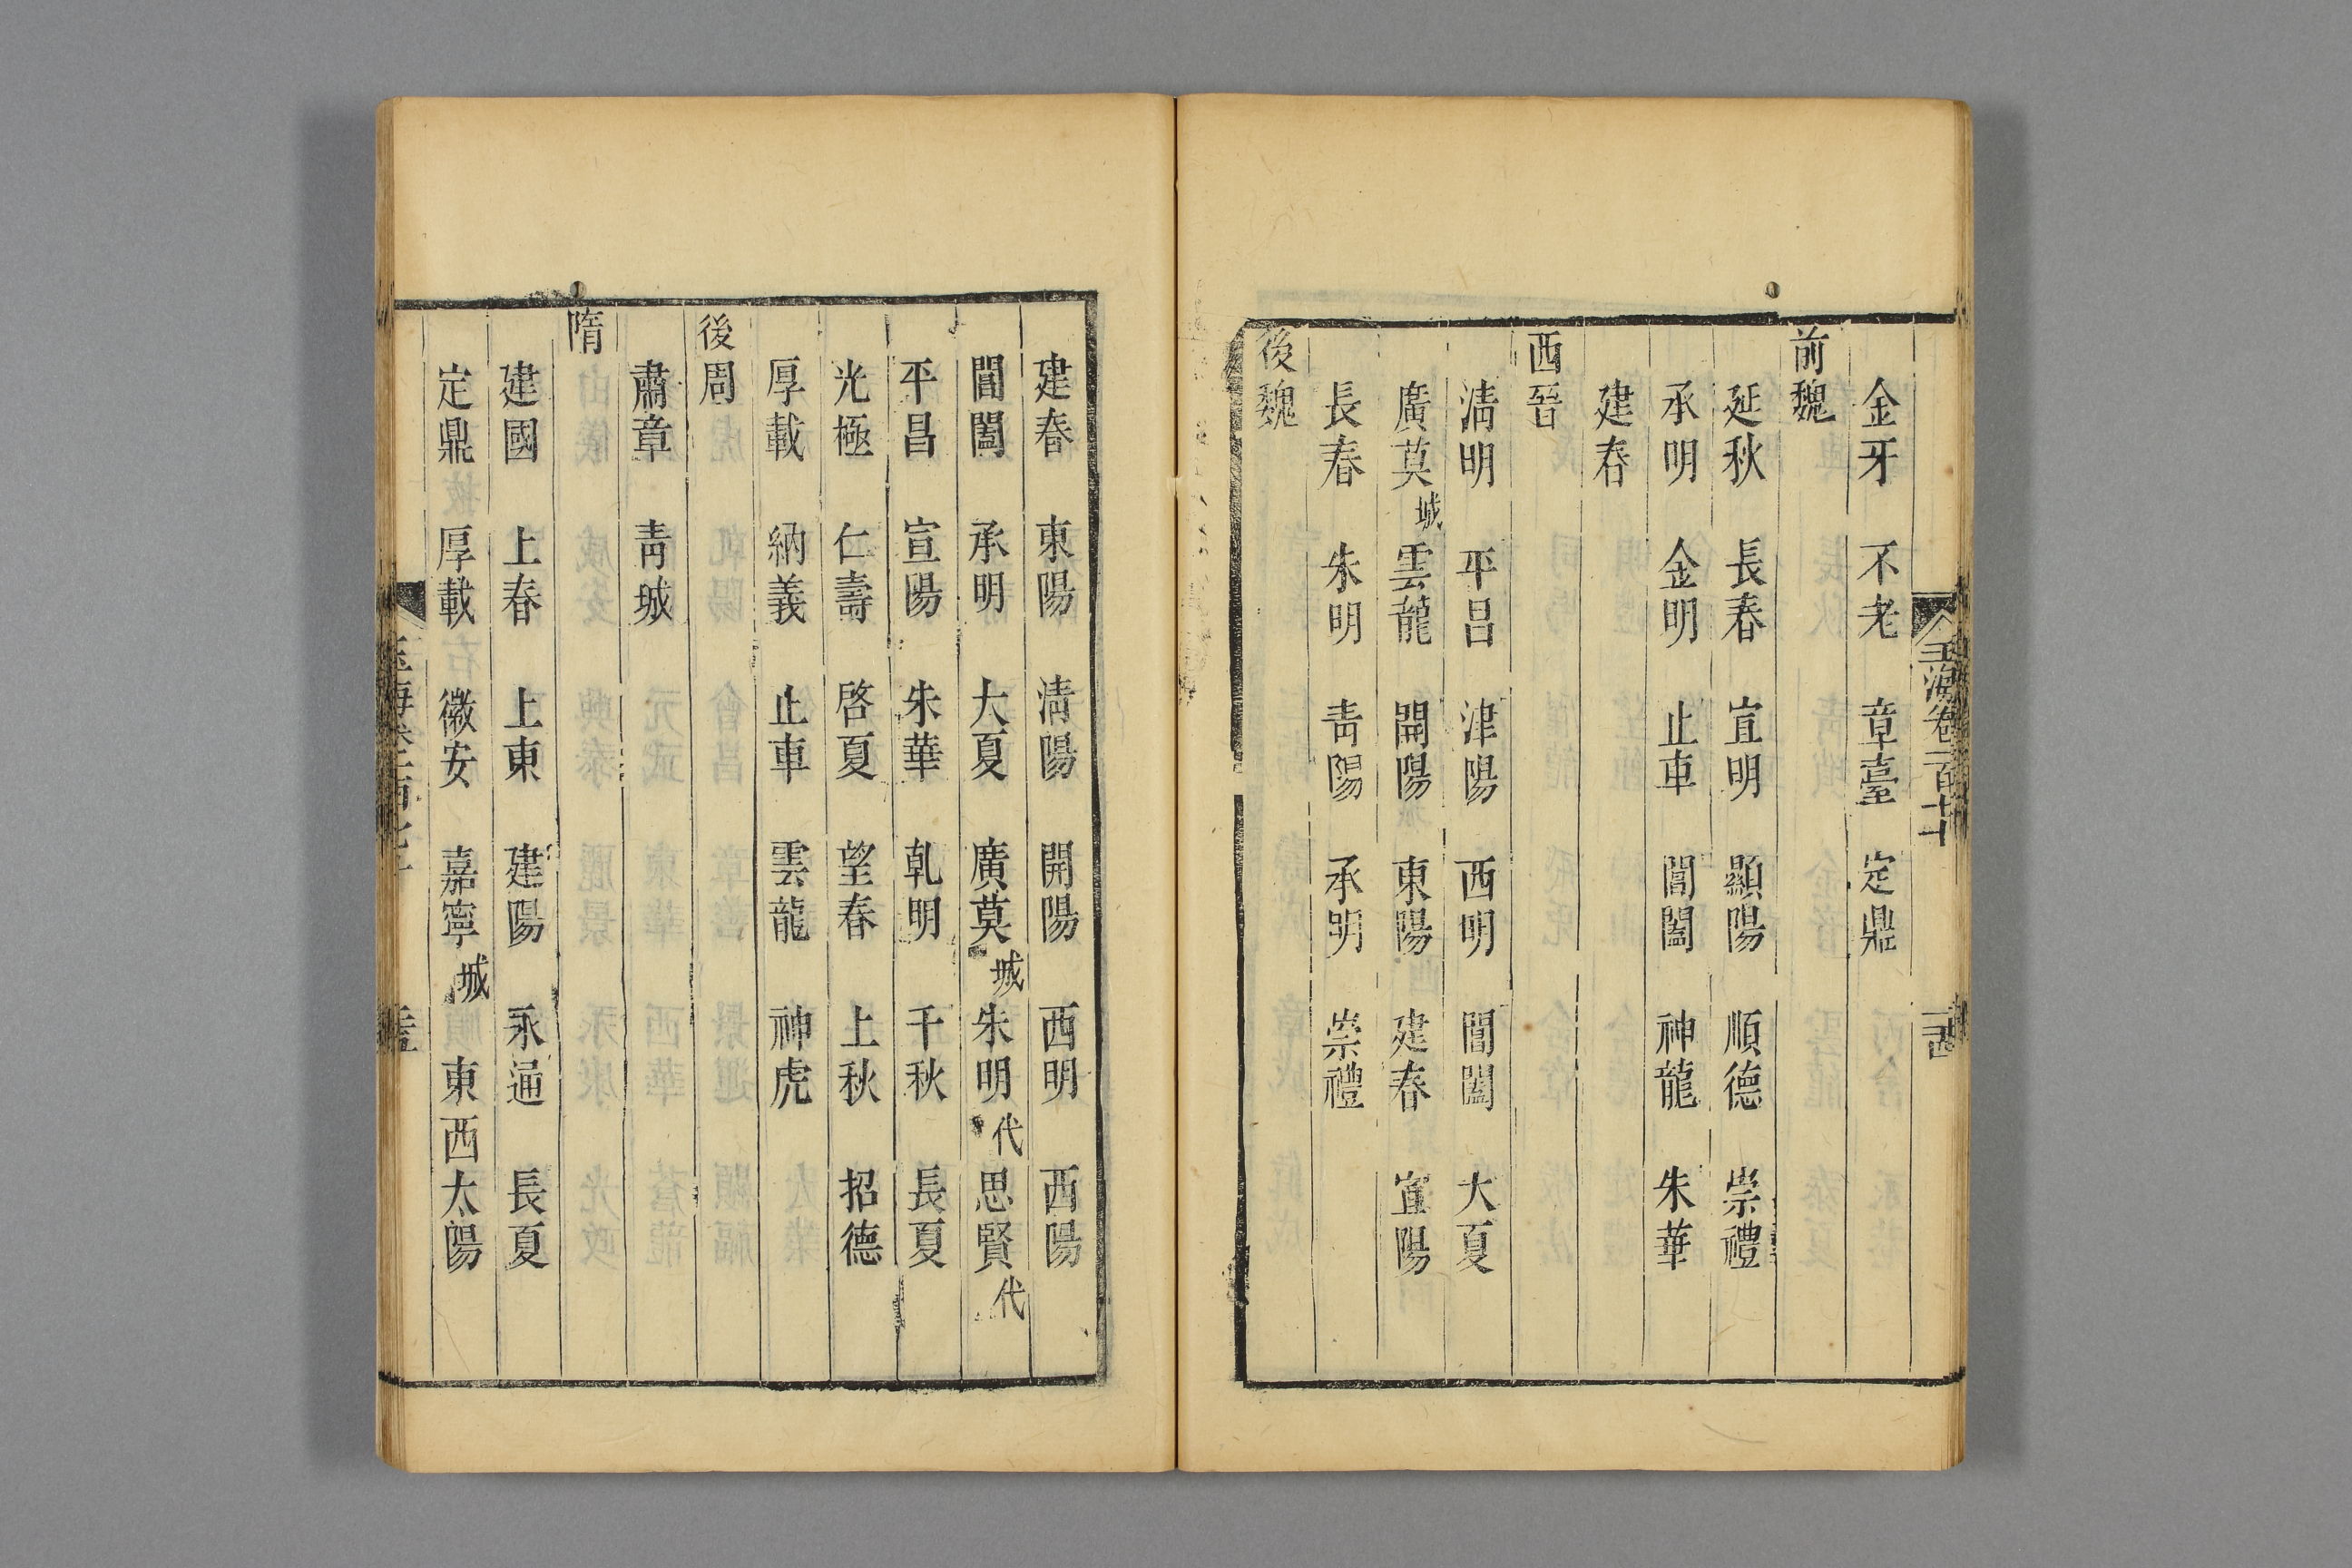 玉海卷一百七十
金牙 不老 章臺 定鼎
前魏
延秋 長春 宣明 顯陽 順德 崇禮
承明 金明 止車 閶闔 神龍 朱華
建春
西晉
淸明 平昌 津陽 西明 閶闔 大夏
廣莫城 雲龍 開陽 東陽 建春 宣陽
長春 朱明 靑陽 承明 崇禮
後魏
建春 東陽 淸陽 開陽 西明 西陽
閶闔 承明 大夏 廣莫城 朱明代 思賢代
平昌 宣陽 朱華 乹明 千秋 長夏
光極 仁壽 啓夏 望春 上秋 招德
厚載 納義 止車 雲龍 神虎
後周
肅章 靑城
隋
建國 上春 上東 建陽 永通 長夏
定鼎 厚載 徽安 嘉寧城 東西太陽